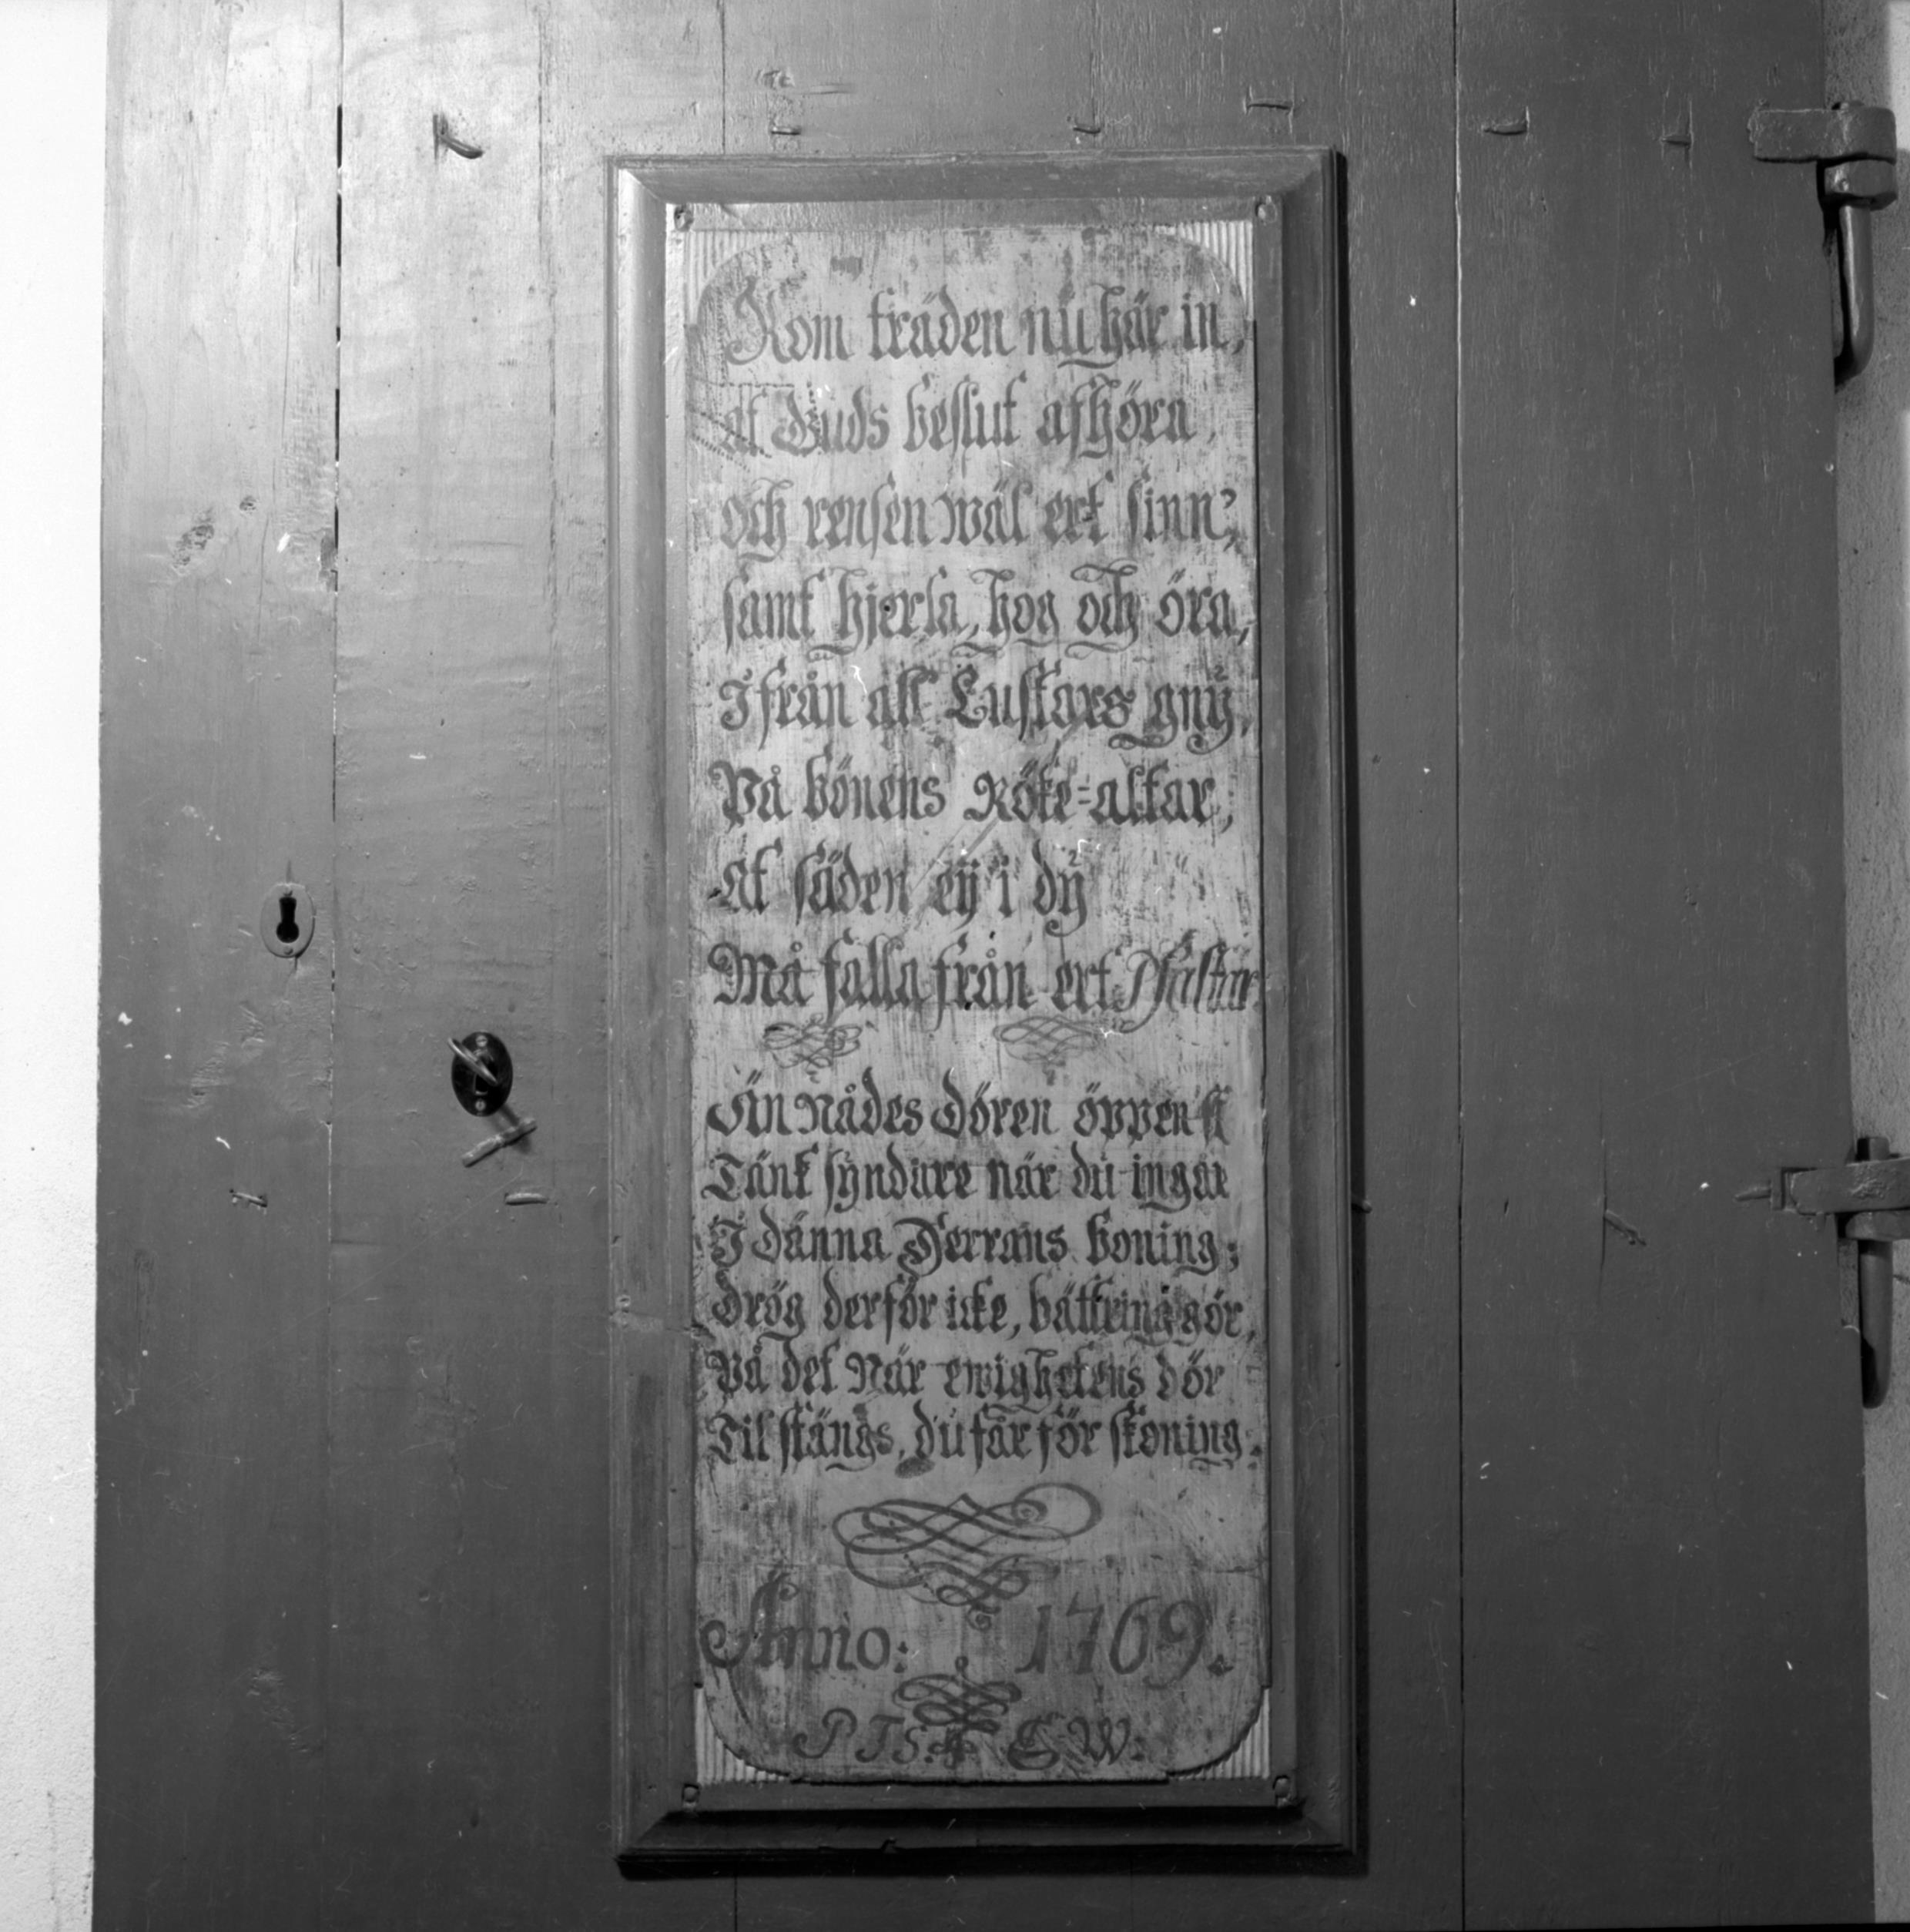 Kom träden nu här in,
at Guds beslut afhöra,
och rensen wäl ert sinn,
samt hjerta, hog och öra,
Ifrån all Lustars gnÿ,
På bönens Röke=altar,
At säden eÿ i dÿ
Må falla från ert Psaltar
Än Nådes Dören öppen st
Tänk syndare när du ingår
I dänna Herrans boning;
Drög derför icke, bättring gör,
På det När ewighetens dör
Til stängs, du får för skoning.
Anno: 1769.
P I S: C W: